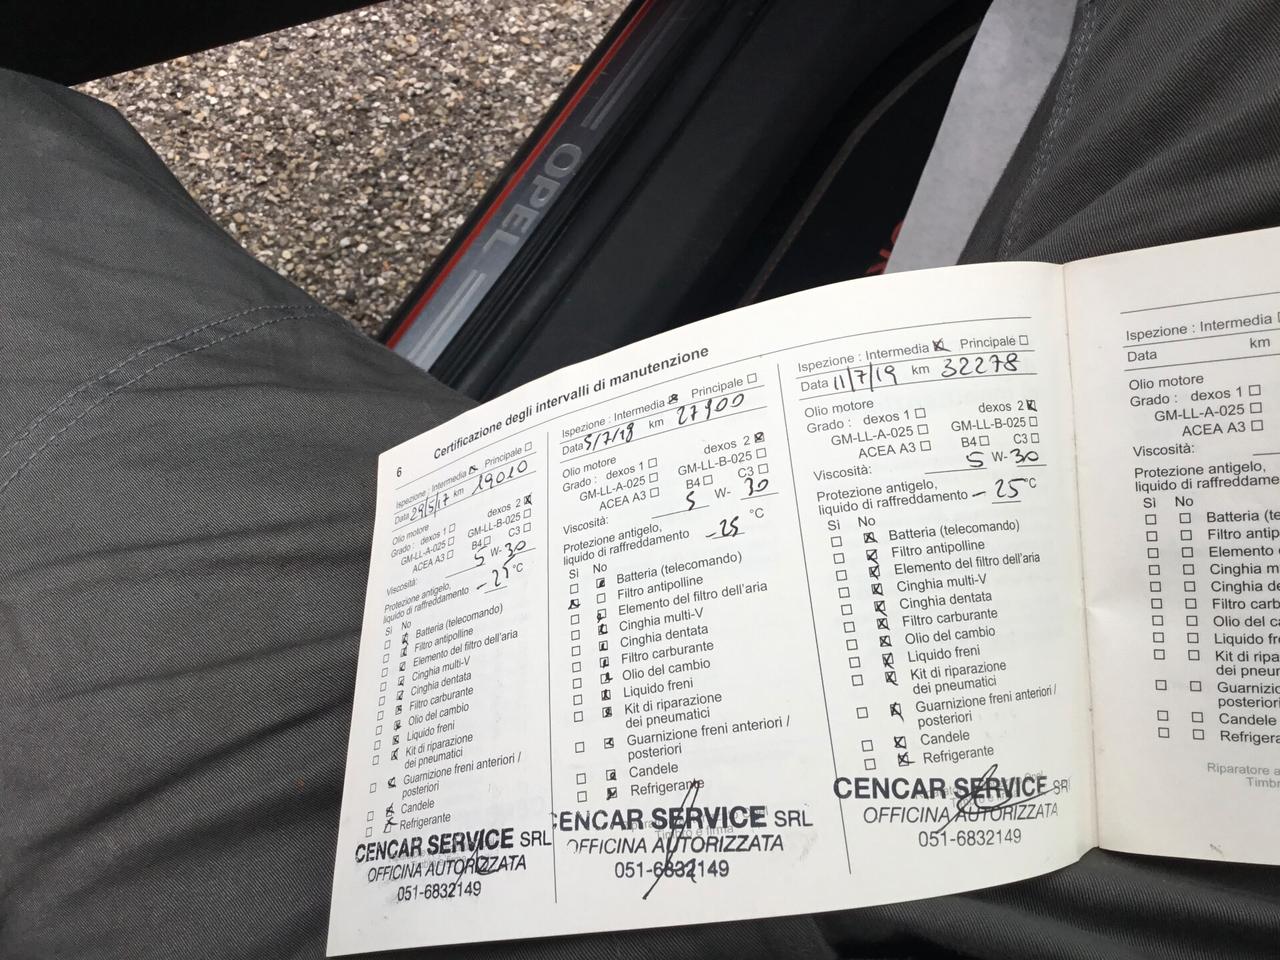 OPEL
6 Certificazione degli intervalli di manutenzione
Ispezione : Intermedia ☒ Principale ☐
Data 29/5/17 km 19010
Olio motore
Grado : dexos 1 ☐ dexos 2 ☒
GM-LL-A-025 ☐ GM-LL-B-025 ☐
ACEA A3 ☐ B4 ☐ C3 ☐
Viscosità: 5 W- 30
Protezione antigelo,
liquido di raffreddamento -25 °C
Sì No
☐ ☒ Batteria (telecomando)
☐ ☒ Filtro antipolline
☐ ☒ Elemento del filtro dell'aria
☐ ☒ Cinghia multi-V
☐ ☒ Cinghia dentata
☐ ☒ Filtro carburante
☐ ☒ Olio del cambio
☐ ☒ Liquido freni
☐ ☒ Kit di riparazione
dei pneumatici
☐ ☒ Guarnizione freni anteriori /
posteriori
☐ ☒ Candele
☐ ☒ Refrigerante
CENCAR SERVICE SRL
OFFICINA AUTORIZZATA
051-6832149
Ispezione : Intermedia ☒ Principale ☐
Data 5/7/18 km 27900
Olio motore
Grado : dexos 1 ☐ dexos 2 ☒
GM-LL-A-025 ☐ GM-LL-B-025 ☐
ACEA A3 ☐ B4 ☐ C3 ☐
Viscosità: 5 W- 30
Protezione antigelo,
liquido di raffreddamento -25 °C
Sì No
☐ ☒ Batteria (telecomando)
☒ ☐ Filtro antipolline
☐ ☒ Elemento del filtro dell'aria
☐ ☒ Cinghia multi-V
☐ ☒ Cinghia dentata
☐ ☒ Filtro carburante
☐ ☒ Olio del cambio
☐ ☒ Liquido freni
☐ ☒ Kit di riparazione
dei pneumatici
☐ ☒ Guarnizione freni anteriori /
posteriori
☐ ☒ Candele
☐ ☒ Refrigerante
CENCAR SERVICE SRL
OFFICINA AUTORIZZATA
051-6832149
Ispezione : Intermedia ☒ Principale ☐
Data 11/7/19 km 32278
Olio motore
Grado : dexos 1 ☐ dexos 2 ☒
GM-LL-A-025 ☐ GM-LL-B-025 ☐
ACEA A3 ☐ B4 ☐ C3 ☐
Viscosità: 5 W- 30
Protezione antigelo,
liquido di raffreddamento -25 °C
Sì No
☐ ☒ Batteria (telecomando)
☐ ☒ Filtro antipolline
☐ ☒ Elemento del filtro dell'aria
☐ ☒ Cinghia multi-V
☐ ☒ Cinghia dentata
☐ ☒ Filtro carburante
☐ ☒ Olio del cambio
☐ ☒ Liquido freni
☐ ☒ Kit di riparazione
dei pneumatici
☐ ☒ Guarnizione freni anteriori /
posteriori
☐ ☒ Candele
☐ ☒ Refrigerante
CENCAR SERVICE SRL
OFFICINA AUTORIZZATA
051-6832149
Ispezione : Intermedia
Data km
Olio motore
Grado : dexos 1 ☐
GM-LL-A-025 ☐
ACEA A3 ☐
Viscosità:
Protezione antigelo,
liquido di raffreddame
Sì No
☐ ☐ Batteria (te
☐ ☐ Filtro antip
☐ ☐ Elemento
☐ ☐ Cinghia m
☐ ☐ Cinghia de
☐ ☐ Filtro carb
☐ ☐ Olio del ca
☐ ☐ Liquido fre
☐ ☐ Kit di ripa
dei pneum
☐ ☐ Guarnizio
posteriori
☐ ☐ Candele
☐ ☐ Refrigera
Riparatore a
Timbr